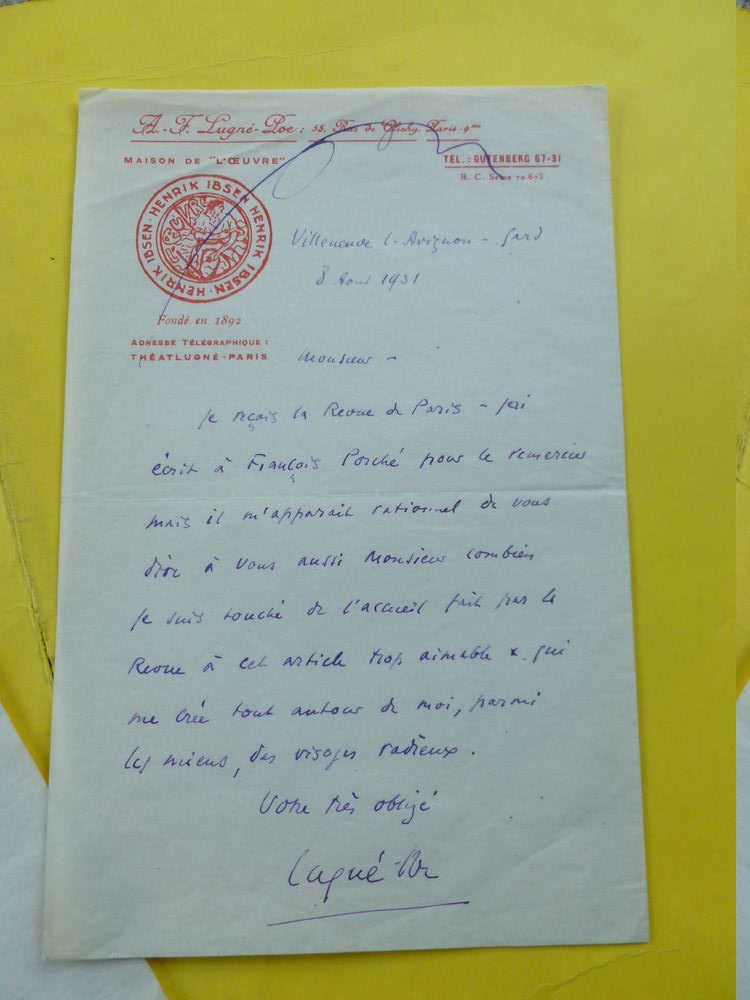 A.-F. Lugné-Poe : 55, Rue de Clichy. Paris-9me
MAISON DE "L'ŒUVRE"
TÉL. : GUTENBERG 67-31
R. C. Seine 70.673
HENRIK IBSEN · HENRIK IBSEN · HENRIK IBSEN · HENRIK IBSEN
L'ŒUVRE
Fondé en 1892
ADRESSE TÉLÉGRAPHIQUE :
THÉATLUGNÉ-PARIS
Villeneuve l-Avignon - Gard
8 Aout 1931
Monsieur -
Je reçois la Revue de Paris - j'ai
écrit à François Porché pour le remercier
mais il m'apparait rationnel de vous
dire à vous aussi Monsieur combien
je suis touché de l'accueil fait par la
Revue à cet article trop aimable x qui
me crée tout autour de moi, parmi
les miens, des visages radieux.
Votre très obligé
Lugné-Poe